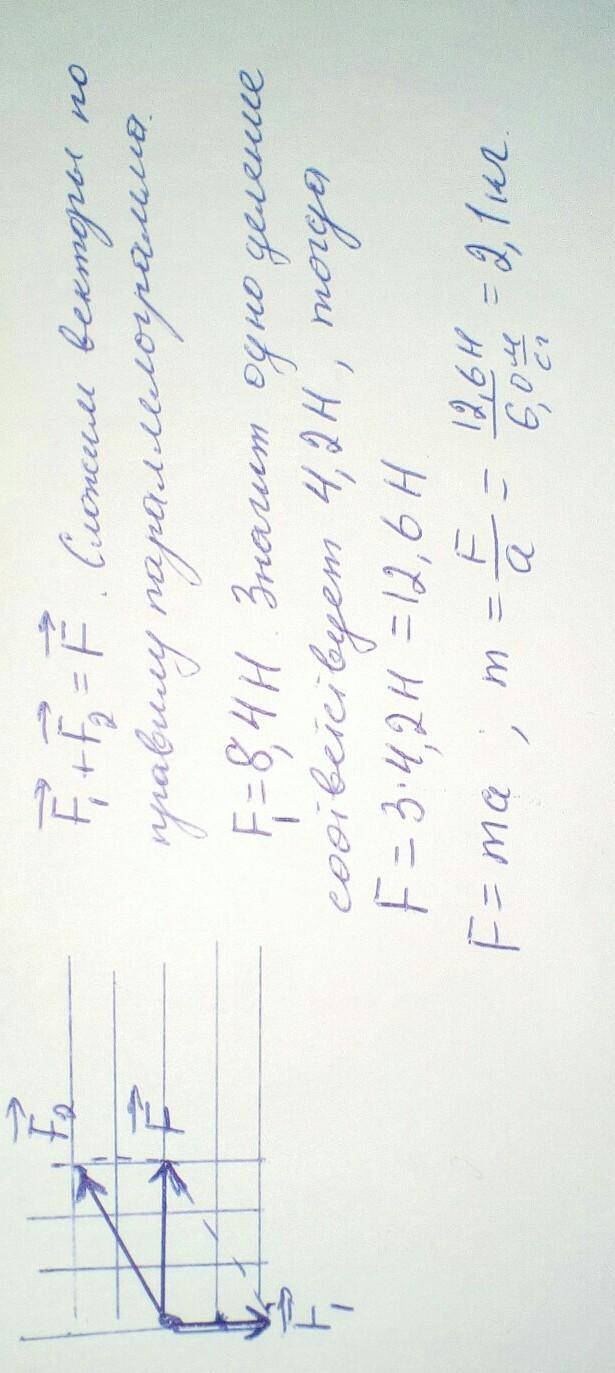 F₂
F
F₁
F₁ + F₂ = F. Сложим векторы по
правилу параллелограмма.
F₁ = 8,4 Н. Значит одно деление
соответствует 4,2 Н, тогда
F = 3·4,2 Н = 12,6 Н
F = ma; m = F/a = 12,6 Н / 6,0 м/с² = 2,1 кг.